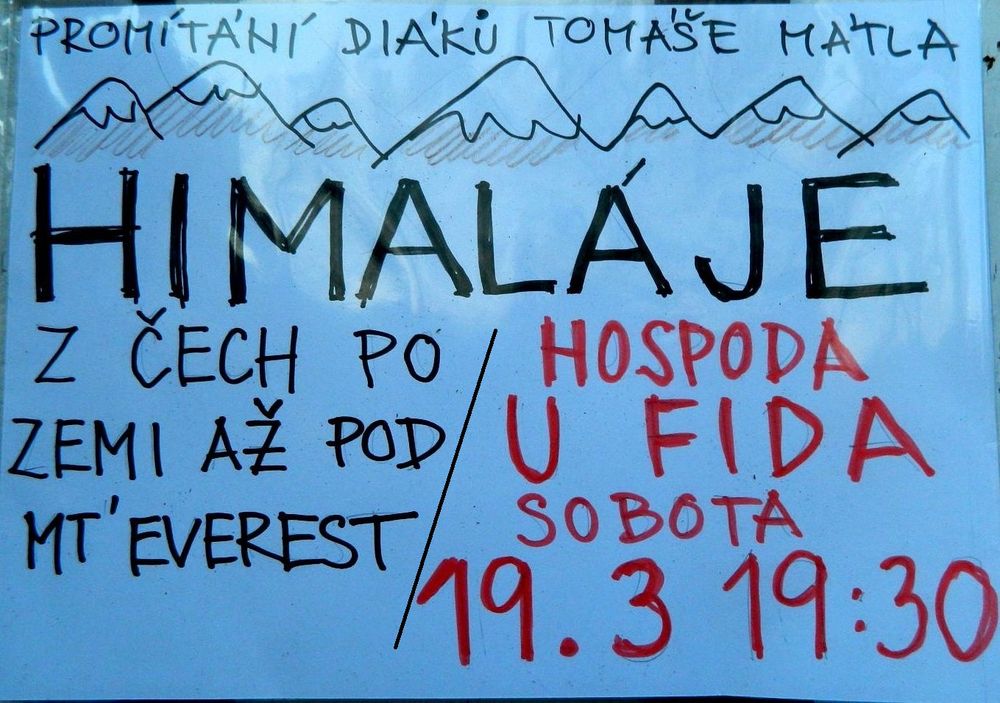 PROMÍTÁNÍ DIÁKŮ TOMÁŠE MÁTLA
HIMALÁJE
Z ČECH PO
ZEMI AŽ POD
MT'EVEREST
HOSPODA
U FIDA
SOBOTA
19.3 19:30